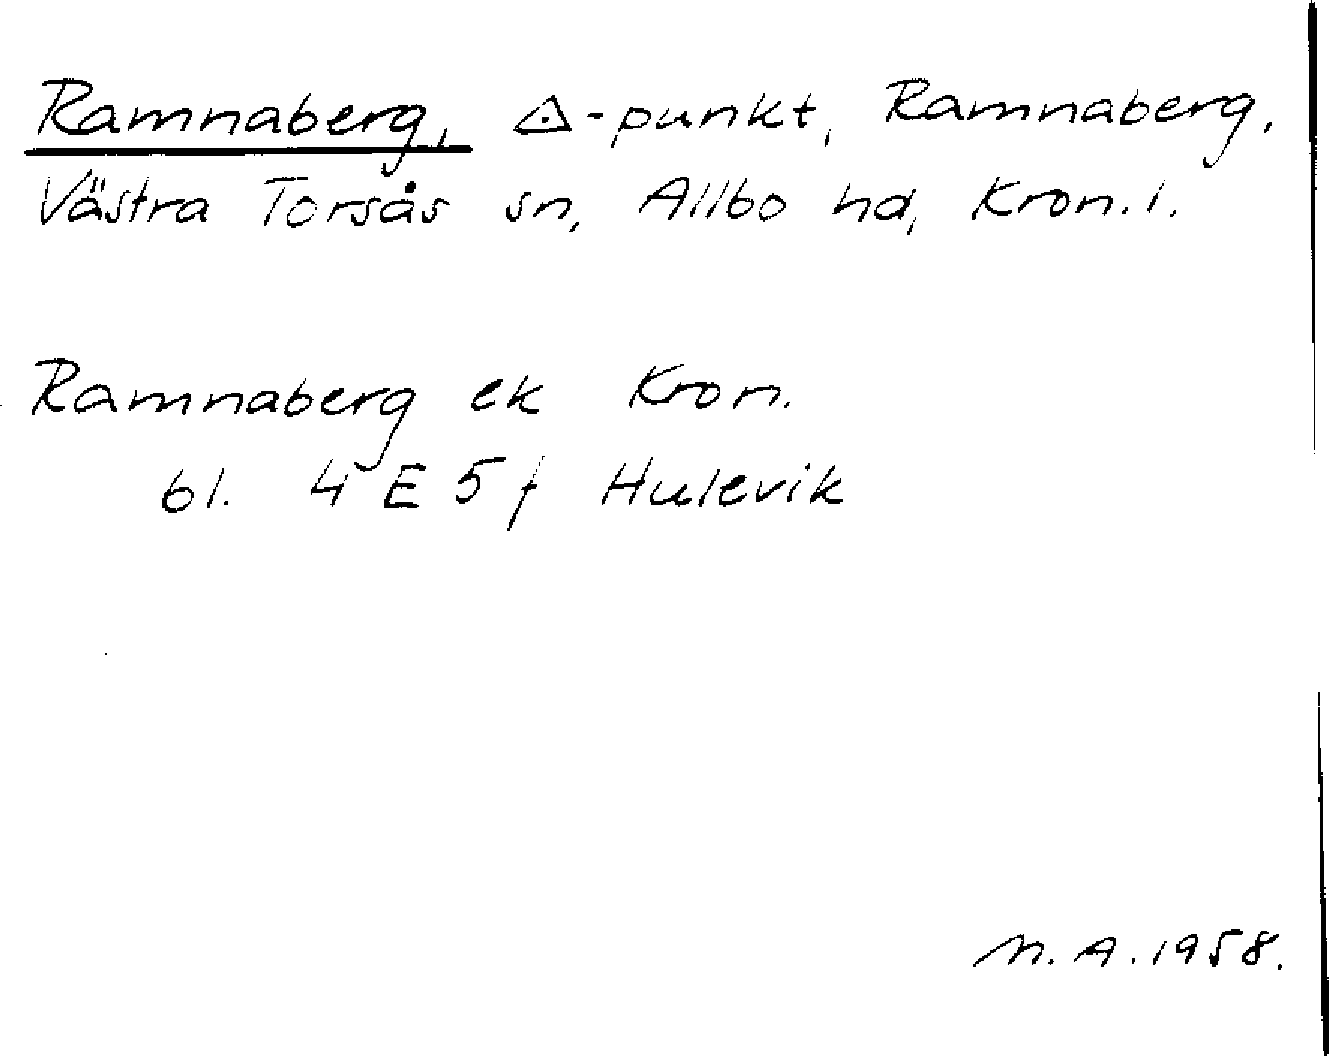 Ramnaberg, △-punkt, Ramnaberg,
Västra Torsås sn, Allbo hd, Kron. l.
Ramnaberg ek Kron.
bl. 4 E 5 f Hulevik
M. A. 1958.